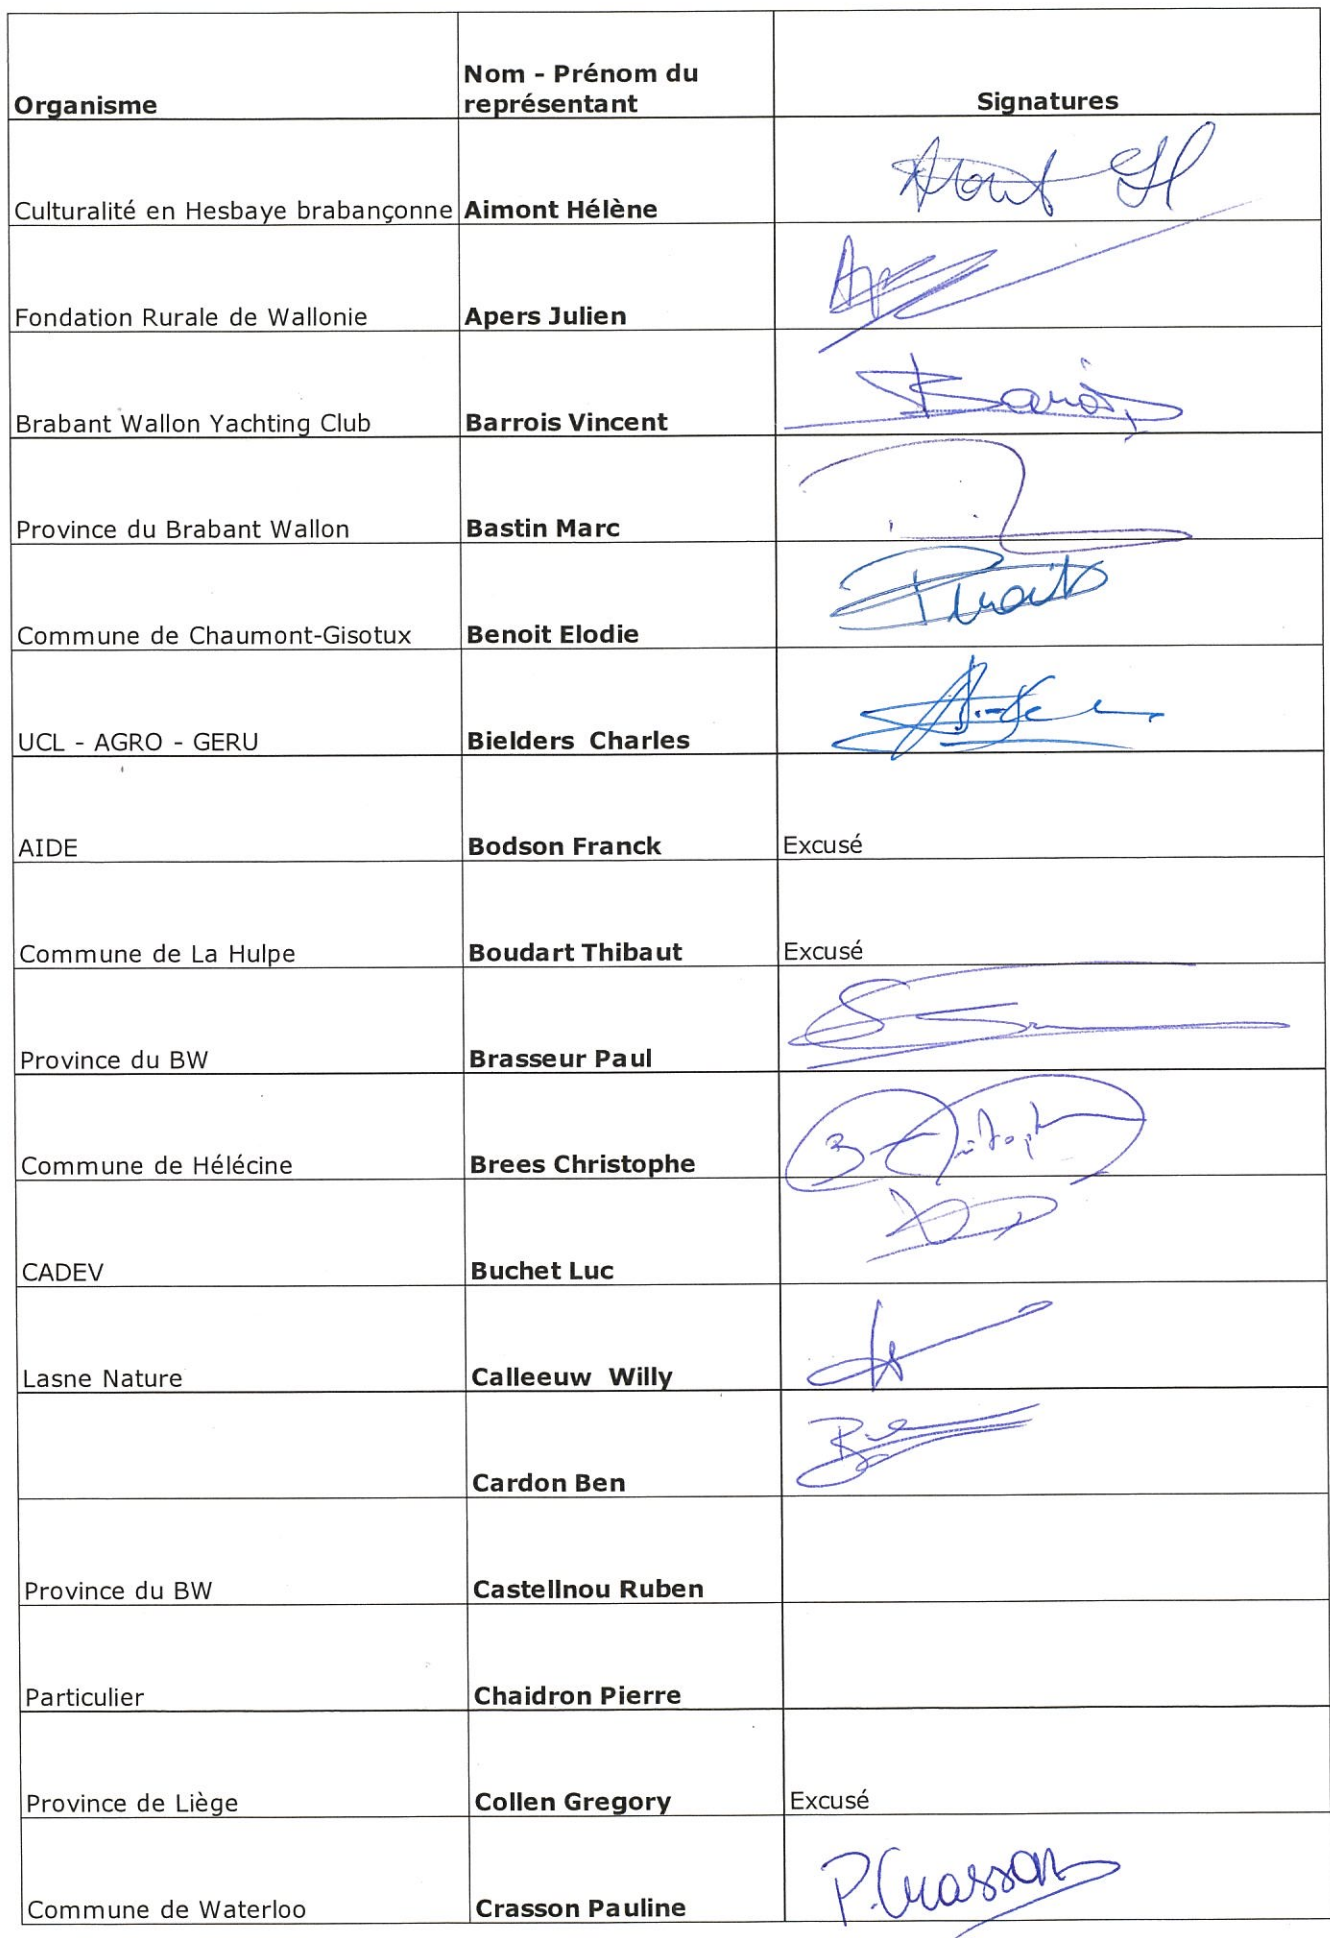 Organisme
Nom - Prénom du
représentant
Signatures
Culturalité en Hesbaye brabançonne Aimont Hélène
Fondation Rurale de Wallonie Apers Julien
Brabant Wallon Yachting Club Barrois Vincent
Province du Brabant Wallon Bastin Marc
Commune de Chaumont-Gisotux Benoit Elodie
UCL - AGRO - GERU Bielders Charles
AIDE Bodson Franck Excusé
Commune de La Hulpe Boudart Thibaut Excusé
Province du BW Brasseur Paul
Commune de Hélécine Brees Christophe
CADEV Buchet Luc
Lasne Nature Calleeuw Willy
Cardon Ben
Province du BW Castellnou Ruben
Particulier Chaidron Pierre
Province de Liège Collen Gregory Excusé
Commune de Waterloo Crasson Pauline P.Crasson